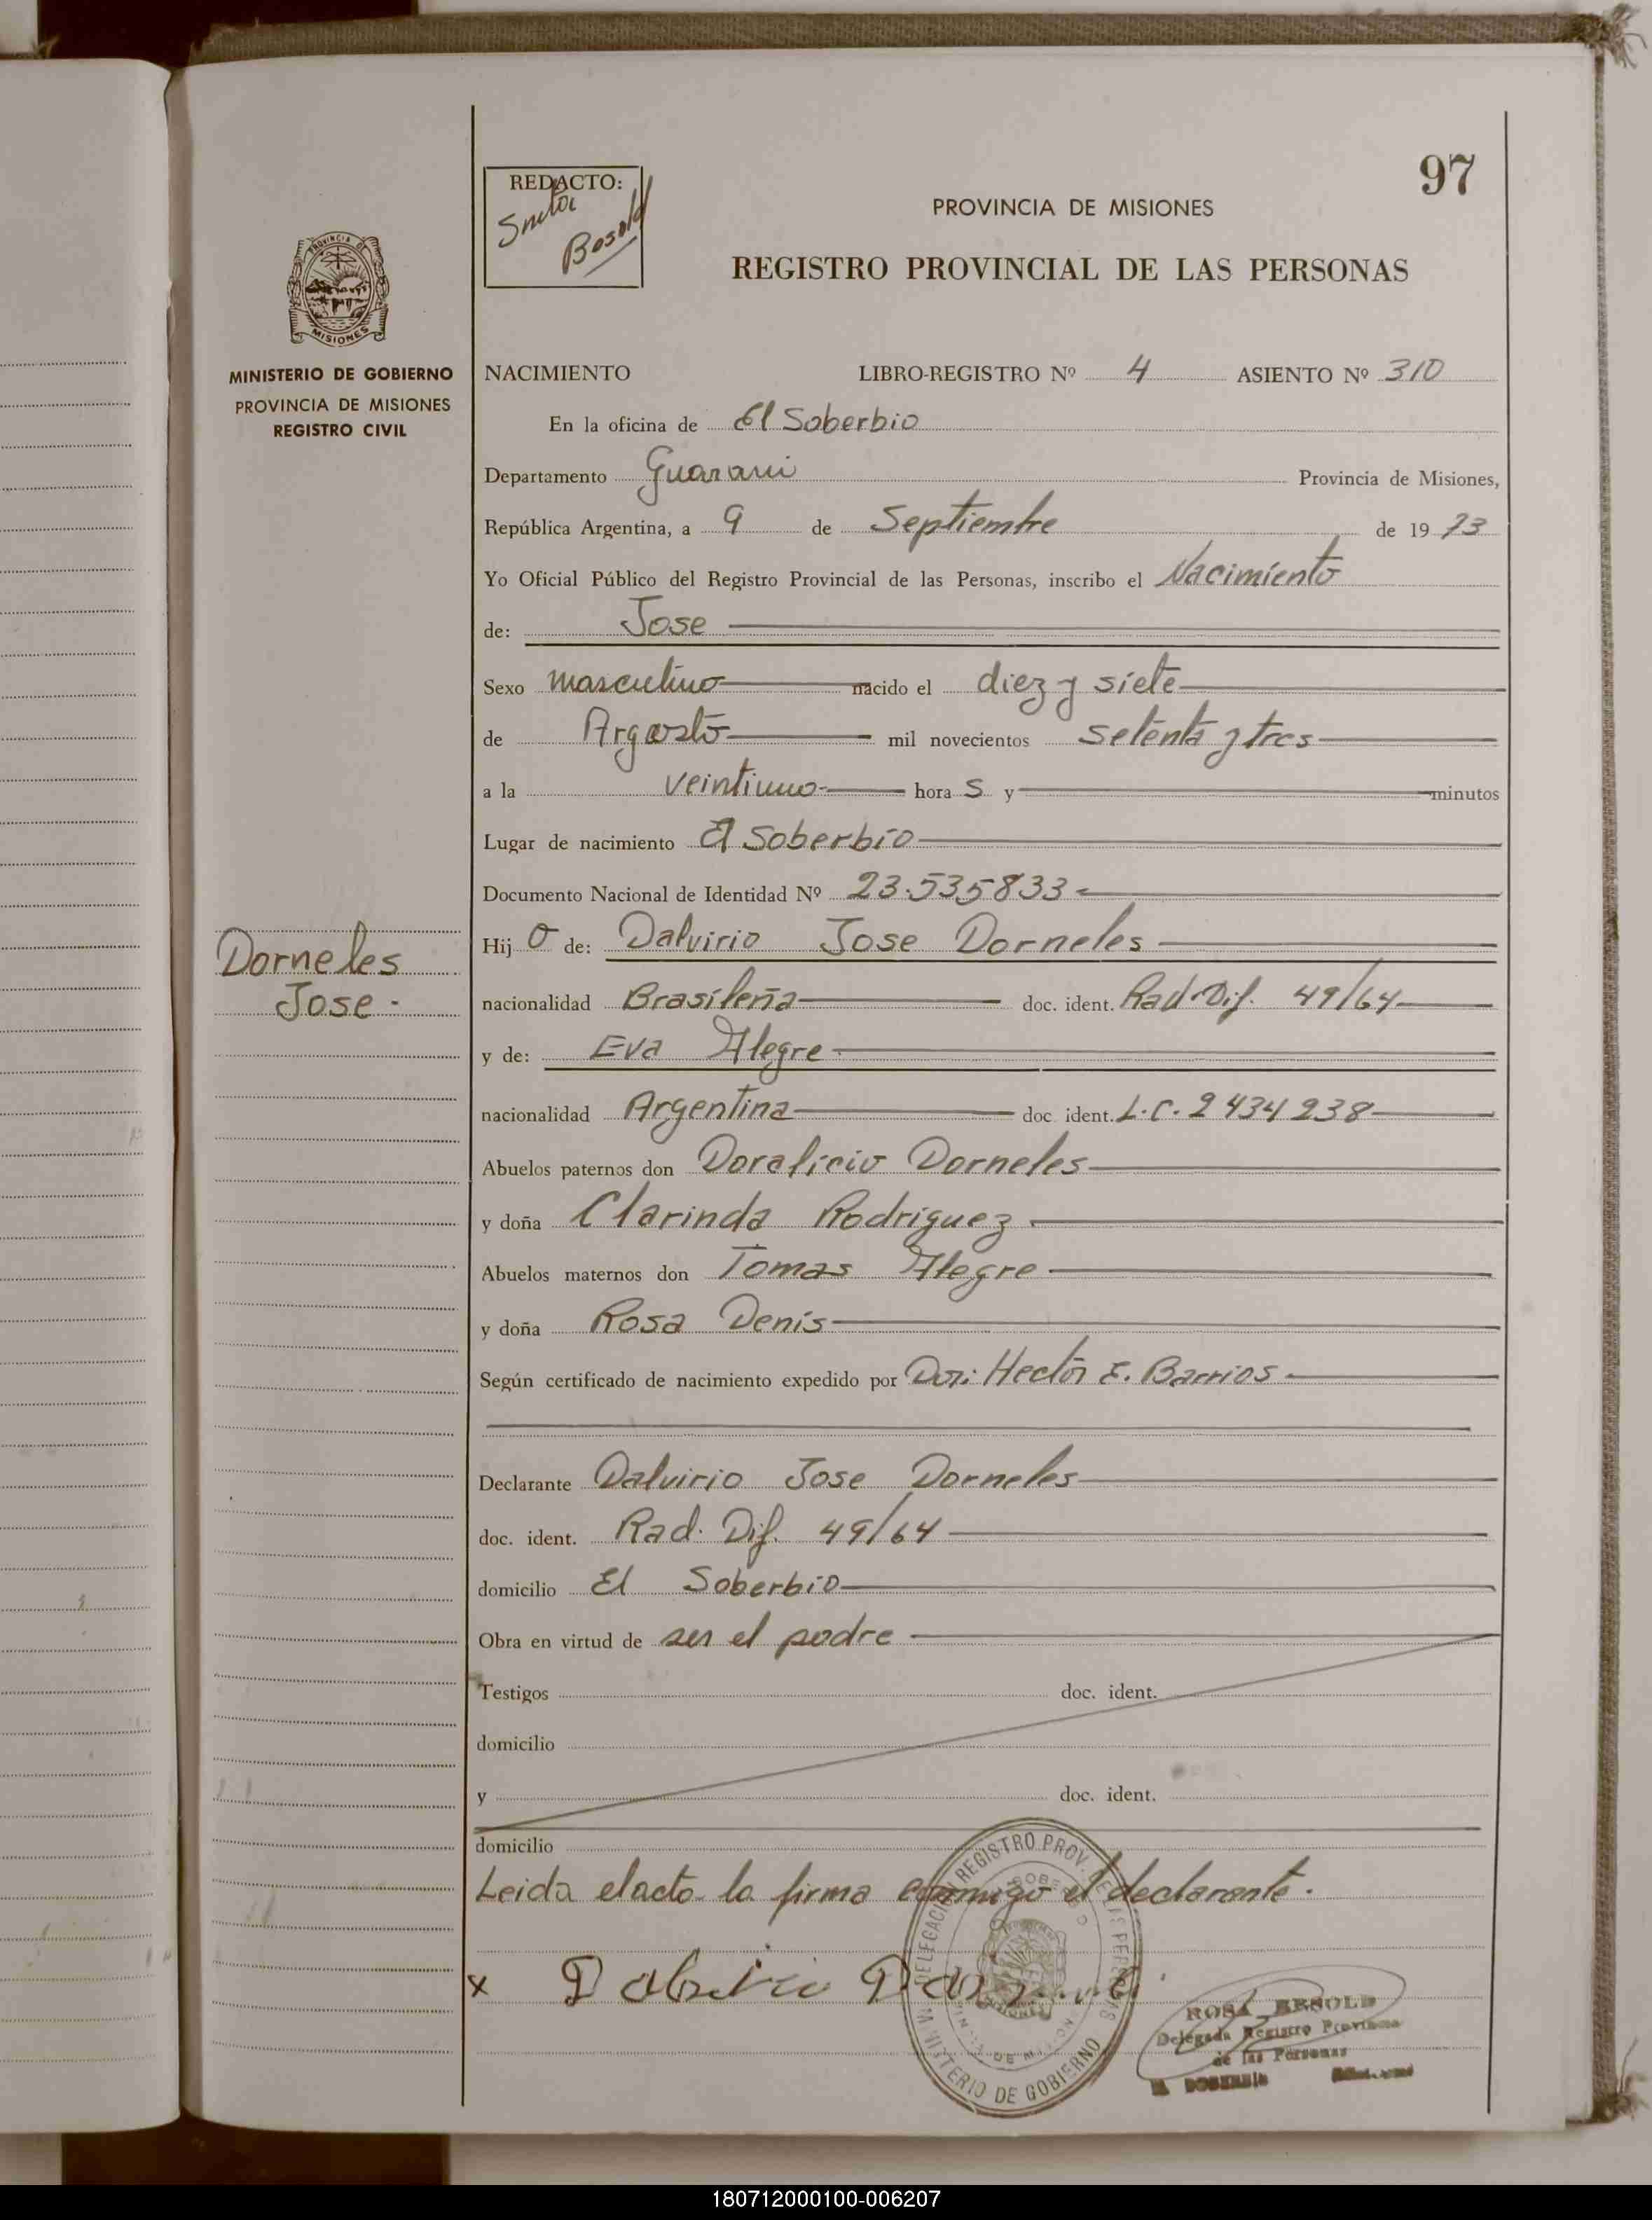 97
REDACTO:
Bosold
PROVINCIA DE MISIONES
REGISTRO PROVINCIAL DE LAS PERSONAS
PROVINCIA DE
MISIONES
MINISTERIO DE GOBIERNO
PROVINCIA DE MISIONES
REGISTRO CIVIL
NACIMIENTO LIBRO-REGISTRO Nº 4 ASIENTO Nº 310
En la oficina de El Soberbio
Departamento Guarani Provincia de Misiones,
República Argentina, a 9 de Septiembre de 19 73
Yo Oficial Público del Registro Provincial de las Personas, inscribo el Nacimiento
de: Jose
Sexo masculino nacido el diez y siete
de Argosto mil novecientos setenta y tres
a la veintiuno hora s y minutos
Lugar de nacimiento El Soberbio
Documento Nacional de Identidad Nº 23.535833
Dorneles
Jose.
Hij o de: Dalvirio Jose Dorneles
nacionalidad Brasileña doc. ident. Rad. Dif. 49/64
y de: Eva Alegre
nacionalidad Argentina doc. ident. L.C. 2434238
Abuelos paternos don Doralicio Dorneles
y doña Clarinda Rodriguez
Abuelos maternos don Tomas Alegre
y doña Rosa Denis
Según certificado de nacimiento expedido por Dor: Hector E. Barrios
Declarante Dalvirio Jose Dorneles
doc. ident. Rad. Dif. 49/64
domicilio El Soberbio
Obra en virtud de ser el padre
Testigos doc. ident.
domicilio
y doc. ident.
domicilio
Leida el acto la firma conmigo el declarante.
x
DELEGACION REGISTRO PROV. DE LAS PERSONAS
MINISTERIO DE GOBIERNO
ROSA BESOLD
Delegada Registro Provincial
de las Personas
180712000100-006207